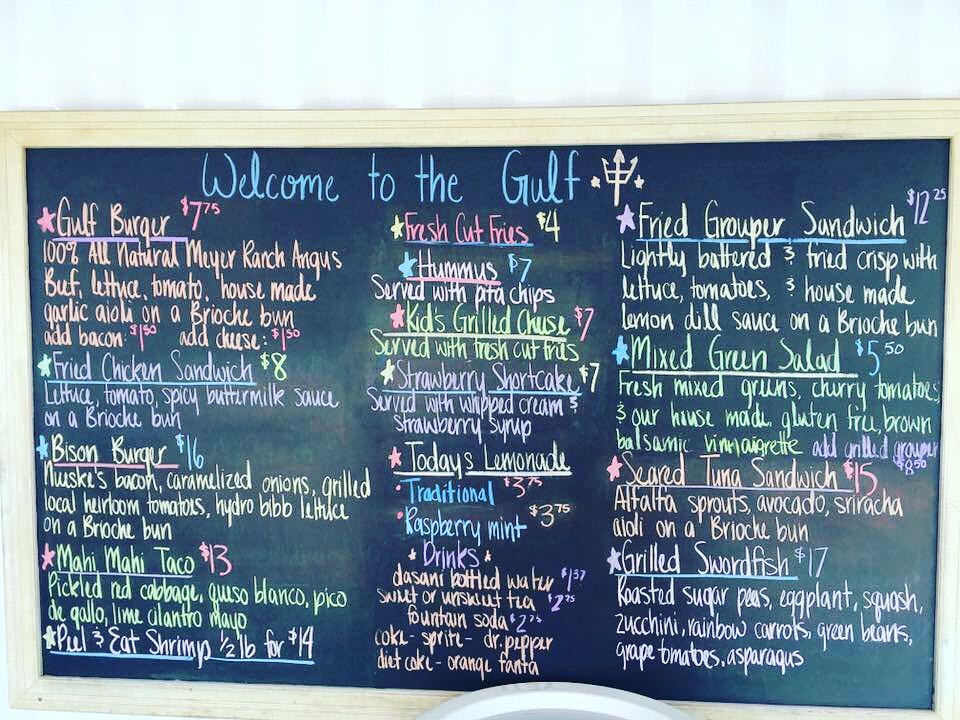 Welcome to the Gulf
Gulf Burger $7.75
100% All Natural Meyer Ranch Angus
Beef, lettuce, tomato, house made
garlic aioli on a Brioche bun
add bacon: $1.50 add cheese: $1.50
Fried Chicken Sandwich $8
Lettuce, tomato, spicy buttermilk sauce
on a Brioche bun
Bison Burger $16
Nueske's bacon, caramelized onions, grilled
local heirloom tomatoes, hydro bibb lettuce
on a Brioche bun
Mahi Mahi Taco $13
Pickled red cabbage, queso blanco, pico
de gallo, lime cilantro mayo
Peel & Eat Shrimp 1/2 lb for $14
Fresh Cut Fries $4
Hummus $7
Served with pita chips
Kid's Grilled Cheese $7
Served with fresh cut fries
Strawberry Shortcake $7
Served with whipped cream &
strawberry syrup
Today's Lemonade
Traditional $3.75
Raspberry mint $3.75
Drinks
dasani bottled water $1.37
sweet or unsweet tea $2.75
fountain soda $2.75
coke - sprite - dr. pepper
diet coke - orange fanta
Fried Grouper Sandwich $12.25
Lightly battered & fried crisp with
lettuce, tomatoes, & house made
lemon dill sauce on a Brioche bun
Mixed Green Salad $5.50
Fresh mixed greens, cherry tomatoes
& our house made, gluten free, brown
balsamic vinnaigrette add grilled grouper
$8.50
Seared Tuna Sandwich $15
Alfalfa sprouts, avocado, sriracha
aioli on a Brioche bun
Grilled Swordfish $17
Roasted sugar peas, eggplant, squash,
zucchini, rainbow carrots, green beans,
grape tomatoes, asparagus